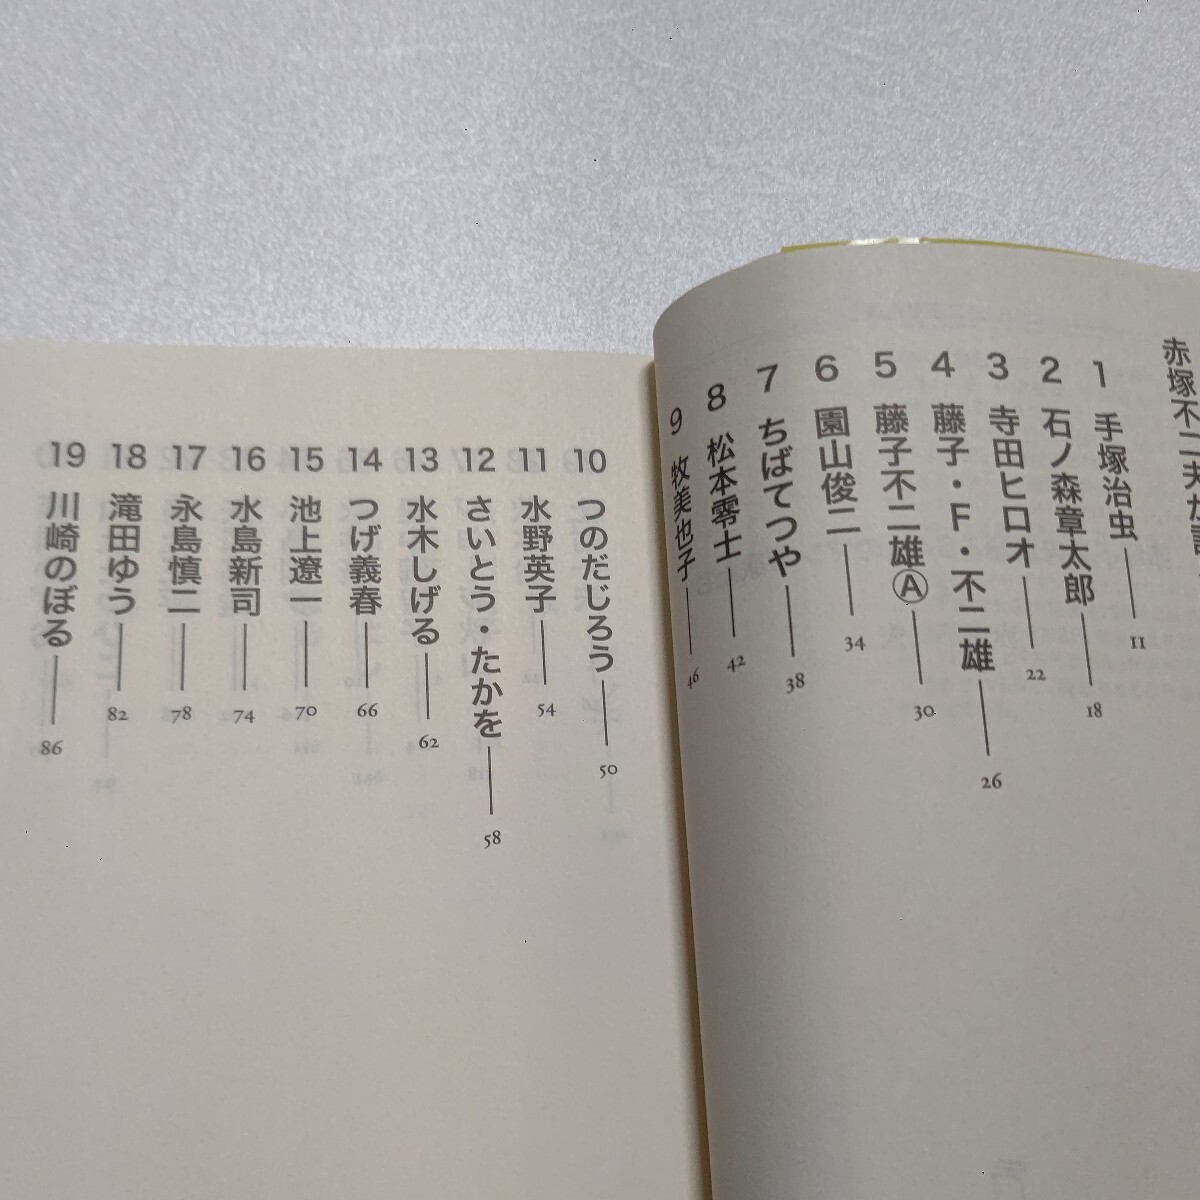 赤塚不二夫が
1 手塚治虫 11
2 石ノ森章太郎 18
3 寺田ヒロオ 22
4 藤子・F・不二雄 26
5 藤子不二雄Ⓐ 30
6 園山俊二 34
7 ちばてつや 38
8 松本零士 42
9 牧美也子 46
10 つのだじろう 50
11 水野英子 54
12 さいとう・たかを 58
13 水木しげる 62
14 つげ義春 66
15 池上遼一 70
16 水島新司 74
17 永島慎二 78
18 滝田ゆう 82
19 川崎のぼる 86